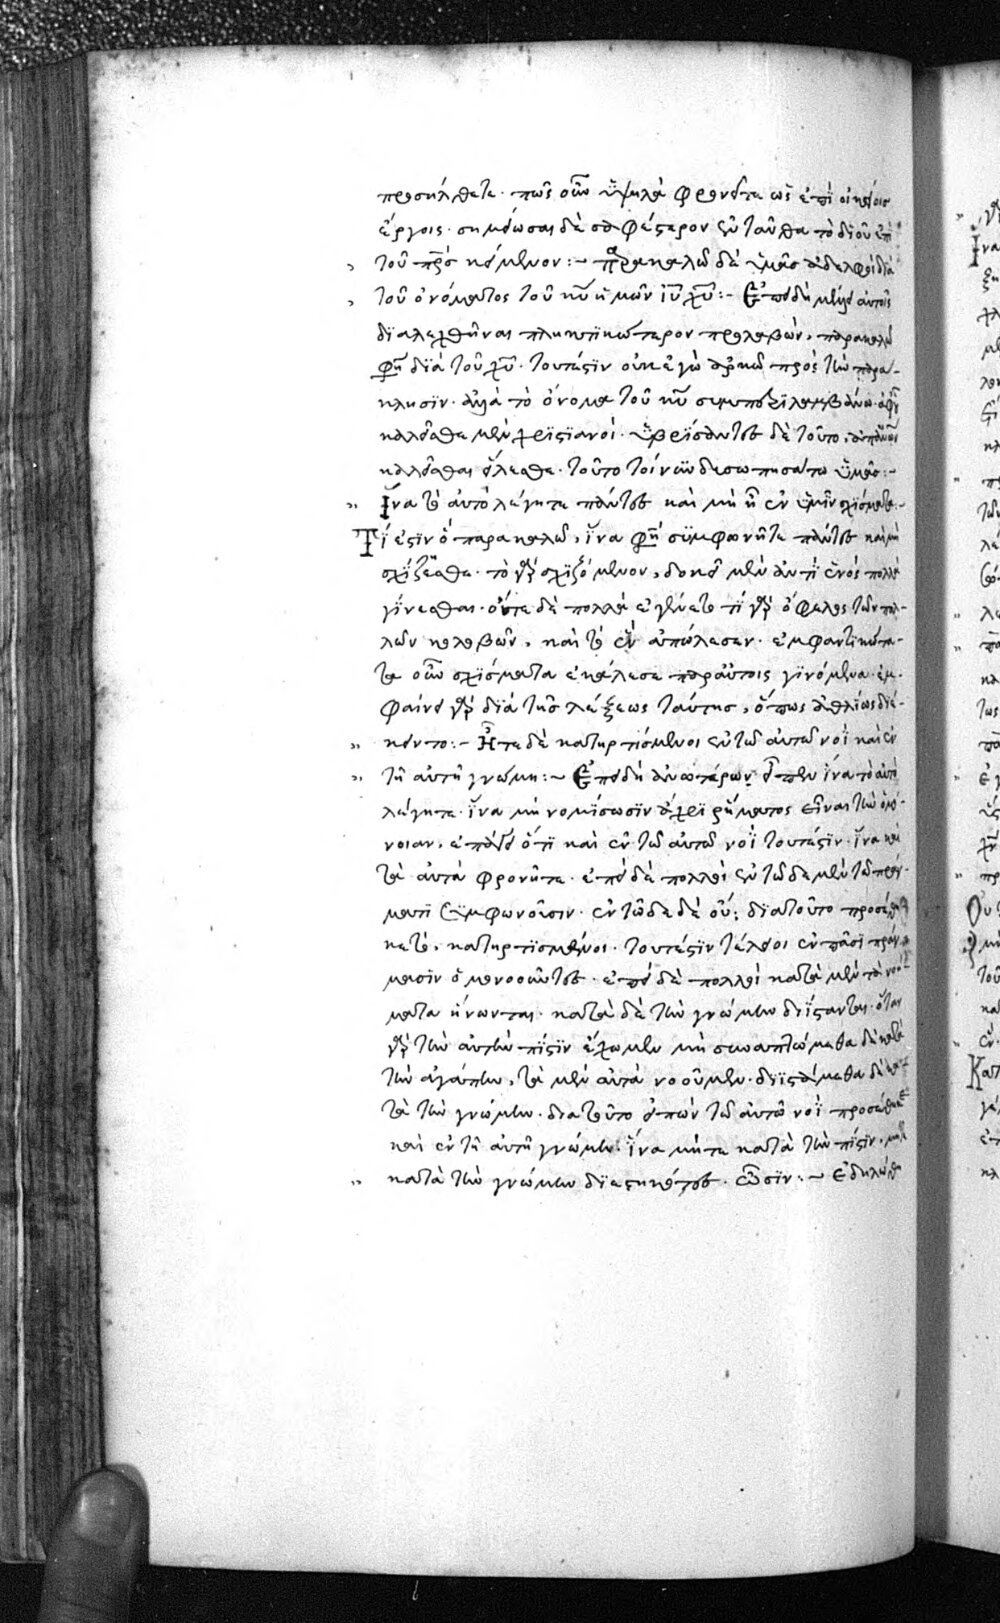 προσήλθετε. πῶς οὖν ὑψηλὰ φρονεῖτε ὡς ἐπὶ οἰκείοις
ἔργοις. σημείωσαι δὲ σαφέστερον ἐνταῦθα τὸ δι οὗ ἐπὶ
τοῦ πρς κείμενον :~ Παρακαλῶ δὲ ὑμᾶς ἀδελφοὶ διὰ
τοῦ ὀνόματος τοῦ κυ ἡμῶν ιυ χυ :~ Ἐπειδὴ μέλλει αὐτοῖς
διαλεχθῆναι πληκτικώτερον προλαβὼν, παρακαλῶ
φη διὰ τοῦ χυ. τουτέστιν οὐκ ἐγὼ ἀρκῶ πρὸς τὴν παρα-
κλησιν. ἀλλὰ τὸ ὄνομα τοῦ κυ συμπαραλαμβάνω. ἀφ οὗ
καλεῖσθε μὲν χριστιανοί. ὑβρίσαντες δὲ τοῦτο, ἀπ ἀνων
καλεῖσθαι εἵλεσθε. τοῦτο τοίνυν δυσωπησάτω ὑμᾶς :~
Ἵνα τὸ αὐτὸ λέγητε πάντες καὶ μὴ ᾖ ἐν ὑμῖν σχίσματα.
Τί ἐστιν ὃ παρακαλῶ, ἵνα φη συμφωνῆτε πάντες καὶ μὴ
σχίζεσθε. τὸ γὰρ σχιζόμενον, δοκεῖ μὲν ἀντὶ ἑνὸς πολλὰ
γίνεσθαι. οὔτε δὲ πολλὰ ἐγένετο τί γὰρ ὄφελος τῶν πολ-
λῶν κολοβῶν, καὶ τὸ ἓν ἀπώλεσεν. ἐμφαντικώτα-
τα οὖν σχίσματα ἐκάλεσε τὰ παρ αὐτοῖς γινόμενα. ἐμ-
φαίνει γὰρ διὰ τῆς λέξεως ταύτης, ὅπως ἀθλίως διέ-
κειντο :~ Ἦτε δὲ κατηρτισμένοι ἐν τῶ αὐτῶ νοῒ καὶ ἐν
τῆ αὐτῆ γνώμη :~ Ἐπειδὴ ἀνωτέρω εἶπεν ἵνα τὸ αὐτὸ
λέγητε. ἵνα μὴ νομίσωσιν ἄχρι ῥήματος εἶναι τὴν ὁμό-
νοιαν, ἐπάγει ὅτι καὶ ἐν τῶ αὐτῶ νοῒ τουτέστιν. ἵνα καὶ
τὰ αὐτὰ φρονῆτε. ἐπεὶ δὲ πολλοὶ ἐν τῶδε μὲν τῶ πράγ-
ματι συμφωνοῦσιν. ἐν τῶδε δὲ οὔ; διατοῦτο προσέθη-
κε τὸ, κατηρτισμένοι. τουτέστιν τέλειοι ἐν πᾶσι πράγ-
μασιν ὁμονοοῦντες. ἐπεὶ δὲ πολλοὶ κατὰ μὲν τὰ νοή-
ματα ἥνωνται. κατὰ δὲ τὴν γνώμην διΐστανται. ὅταν
γὰρ τὴν αὐτὴν πίστιν ἔχωμεν μὴ συναπτώμεθα δὲ κατὰ
τὴν ἀγάπην, τὰ μὲν αὐτὰ νοοῦμεν. διϊστάμεθα δὲ κα-
τὰ τὴν γνώμην. διατοῦτο εἰπὼν τῶ αὐτῶ νοῒ προσέθηκε
καὶ ἐν τῆ αὐτῆ γνώμη. ἵνα μήτε κατὰ τὴν πίστιν, μήτε
κατὰ τὴν γνώμην διεστηκότες ὦσιν :~ Ἐδηλώθη